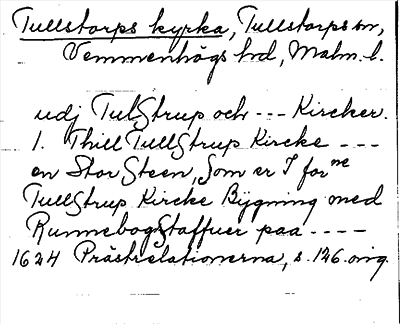 Tullstorps kyrka, Tullstorps sn,
Vemmenhögs hd, Malm. l.
udj TulStrup och --- Kircker.
1. Thill TullStrup Kircke ---
en Stor Steen, Som er I for ne
TullStrup Kircke Bÿgning med
RunnebogStaffuer paa ----
1624 Prästrelationerna, s. 126. orig.